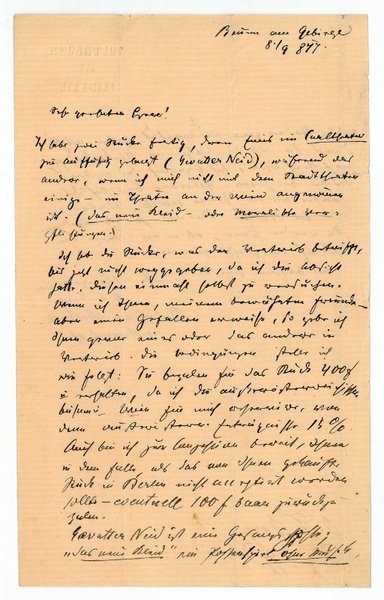 Brunn am Gebirge
8/9 877.
Sehr geehrter Herr!
Ich habe zwei Stücke fertig, deren Eines im Carltheater
zur Aufführung gelangt (Gevatter Neid), während das
andere, wenn ich mich nicht mit dem Stadttheater
einige – im Theater an der Wien angenommen
ist. (Das neue Kleid – oder
Ich habe die Stücke, was den Vertrieb betrifft,
bis jetzt nicht weggegeben, da ich die Absicht
hatte, diesen einmal selbst zu versuchen.
Wenn ich Ihnen, meinem bewährten Freunde
aber einen Gefallen erweise, so gebe ich
Ihnen gerne eines oder das andere in
Vertrieb. Die Bedingungen stelle ich
wie folgt: Sie bezahlen für das Stück 400 f
da ich die
Wien für mich reservire, von
dem 15 %.
Auch bin ich zur Concession bereit, Ihnen
in dem Falle, als das von Ihnen gekaufte
Stück in Berlin nicht acceptirt werden
sollte – eventuell 100 f baar zurückzu-
zahlen.
Gevatter Neid ist eine Gesangsposse,
"Das neue Kleid" ein ohne Musik.